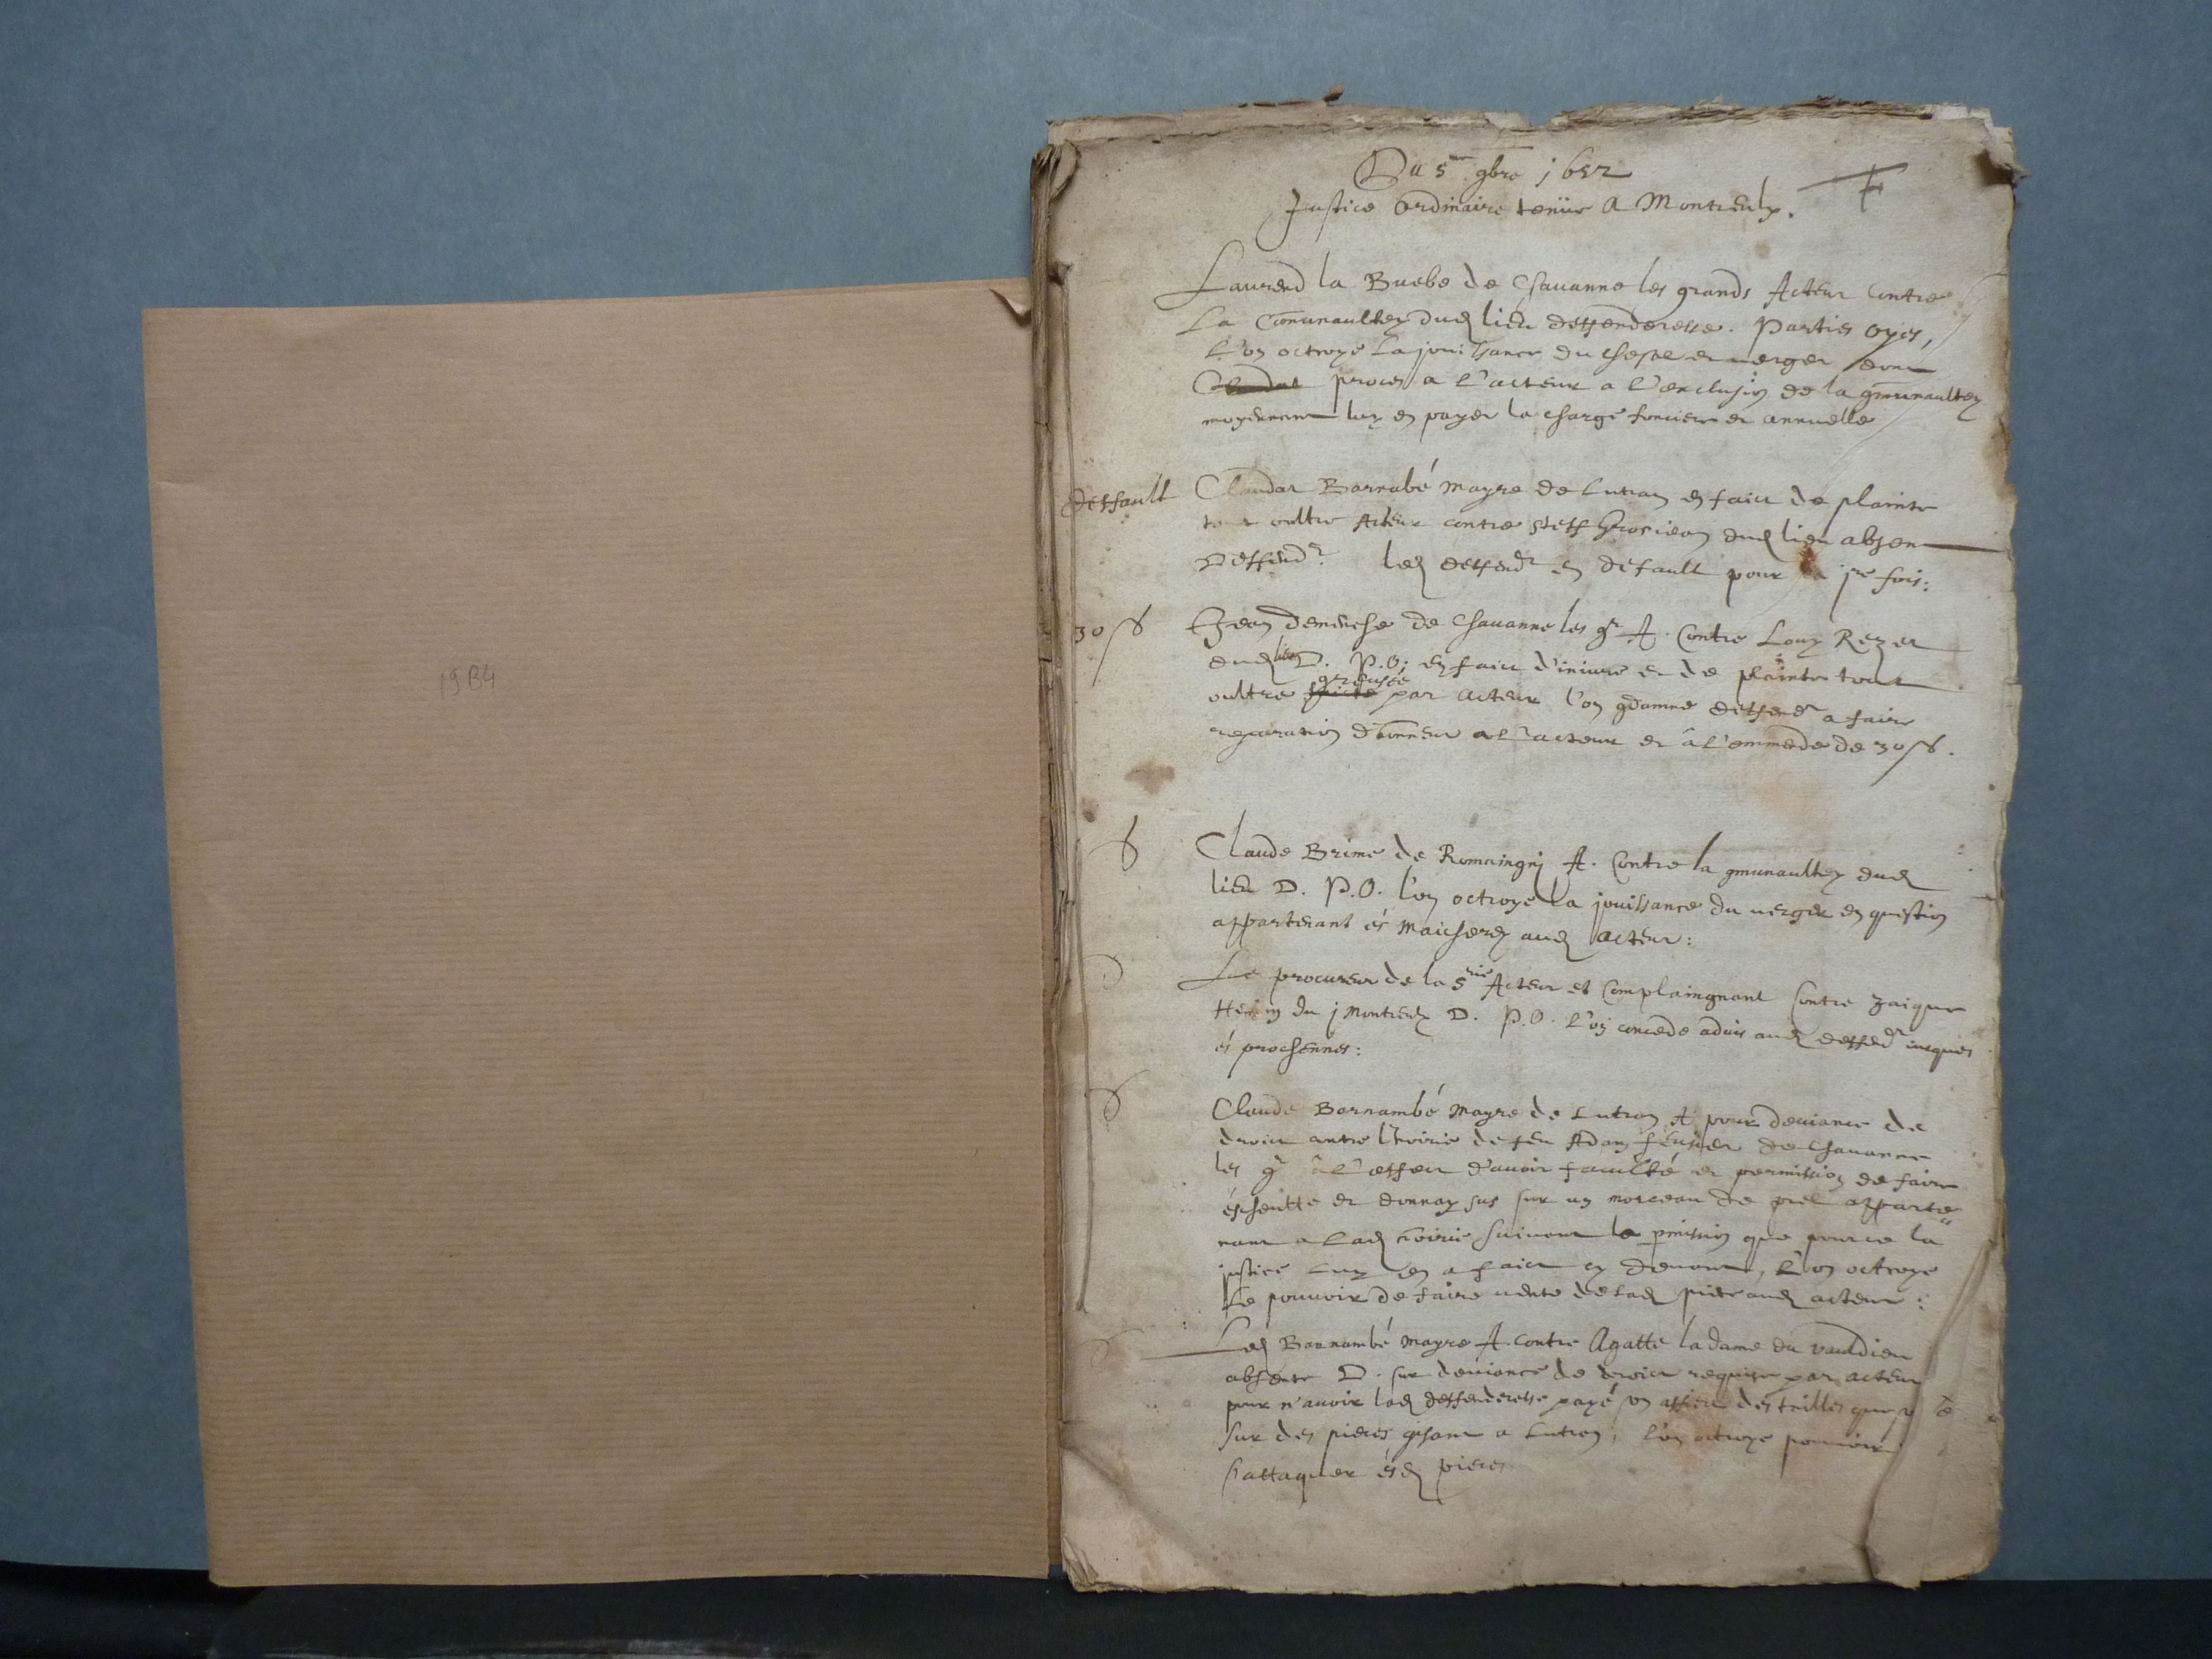 19B4
Du 5me 9bre 1652
Justice ordinaire tenüe a Montreulx.
Laurend la Buebe de Chavanne les grands Acteur contre
La Comunaultey dud lieu deffenderesse. Parties oyes,
L'on octroye la jouissance du chesal et verger dont
proces a l'acteur a l'exclusion de la gmunaultey
moyennant luy en payer la charge fonciere et annuelle
deffault
Claudat Barnabé mayre de Lutran en faict de plainte
tout oultre Acteur contre Steff Grosjean dud lieu absent
Deffendr. Led deffendr en default pour la jre fois:
30 ß
Jean demenche de Chavanne les gr A. Contre Louy Rezet
dud lieu D. P.O; en faict d'iniure et de plainte tout
oultre par acteur l'on gdamne deffendr a faire
reparation d'honneur a l'acteur et â l'emmende de 30 ß.
Claude Brime de Romaingnj A. Contre la gmunaultey dud
lieu D. P.O. l'on octroye la jouissance du verger en question
appartenant és Maicherey aud acteur:
Le procureur de la Srie Acteur et Complaingnant Contre Jaique
du j Montreulx D. P.O. l'on concede advis aud deffendr jusques
és prochennes:
Claude Barnambé mayre de Lutran A. pour deviance de
droict antre l'hoirie de feu Adam de Chavanne
les gr â l'effect d'avoir faculté et permission de faire
éscheutte et donnay sus sur un morceau de prel apparte
nant a lad hoirie suivant la pmission que pource la
justice luy en a faict cy devant, L'on octroye
Le pouvoir de faire vente de lad piece aud acteur:
Led Barnambé mayre A. contre Agatte la dame du vauldieu
absente D. sur deviance de droict requise par acteur
pour n'avoir lad deffenderesse payé son des tailles
sur des pieces gisant a Lutran, l'on octroye pouvoir
s'attaquer ésd pieces